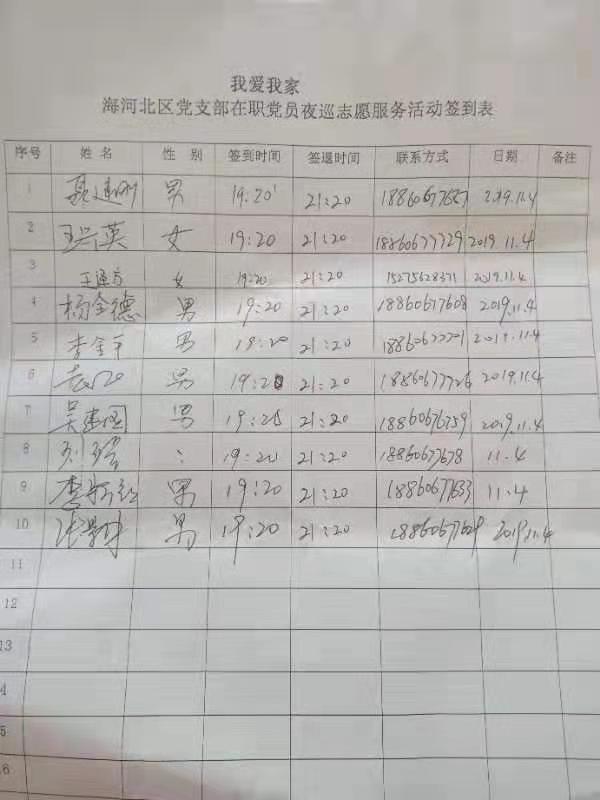 我爱我家
海河北区党支部在职党员夜巡志愿服务活动签到表
序号 姓名 性别 签到时间 签退时间 联系方式 日期 备注
1 男 19:20 21:20 18860677657 2019.11.4
2 英 女 19:20 21:20 18860677729 2019.11.4
3 王连芳 女 19:20 21:20 15275628371 2019.11.4
4 杨全德 男 19:20 21:20 18860677608 2019.11.4
5 李全平 男 19:20 21:20 18860677701 2019.11.4
6 男 19:20 21:20 18860677726 2019.11.4
7 吴建国 男 19:20 21:20 18860676759 2019.11.4
8 刘 : 19:20 21:20 18860677678 11.4
9 李 男 19:20 21:20 18860677633 11.4
10 张 男 19:20 21:20 18860677629 2019.11.4
11
12
13
4
5
6